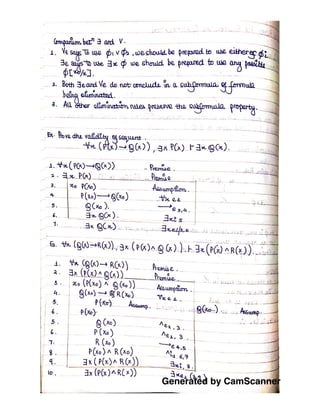 Comparison betⁿ ∃ and ∨.
1. ∨e says to use φ₁ ∨ φ₂, we should be prepared to use either φ₁.
∃e says to use ∃x φ we should be prepared to use any possible
φ[x₀/x].
2. Both ∃e and ∨e do not conclude in a subformula of formula
being eliminated.
3. All other elimination rules preserve the subformula property.
Ex. Prove the validity of sequent.
∀x (P(x)→Q(x)), ∃x P(x) ⊢ ∃x Q(x).
1. ∀x (P(x)→Q(x)) - Premise.
2. ∃x P(x) Premise
3. x₀ P(x₀) Assumption.
4. P(x₀)→Q(x₀) ∀x e 1
5. Q(x₀). →e 3,4.
6. ∃x Q(x). ∃x i 5
7. ∃x Q(x).
Ex. ∀x (Q(x)→R(x)), ∃x (P(x)∧Q(x)) ⊢ ∃x (P(x)∧R(x)).
1. ∀x (Q(x)→R(x)) Premise.
2. ∃x (P(x)∧Q(x)) Premise
3. x₀ (P(x₀)∧Q(x₀)) Assumption.
4. Q(x₀)→R(x₀) ∀x e 1.
5. P(x₀) Assump. Q(x₀) Assump.
6. P(x₀)
5. Q(x₀) ∧e₂ 3.
6. P(x₀) ∧e₁ 3.
7. R(x₀) →e 4,5.
8. P(x₀)∧R(x₀) ∧i 6,7
9. ∃x (P(x)∧R(x)) ∃x i, 8.
10. ∃x (P(x)∧R(x))
Generated by CamScanner